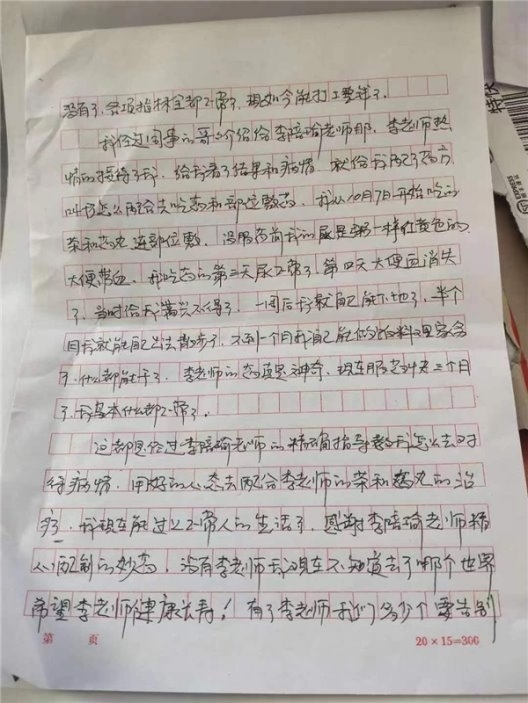 没有了，各项指标全都正常了，现如今能打工赚钱了。
我经过同事的哥哥介绍给李培瑜老师那，李老师热
情的接待了我，给我看了结果和病情，就给我配了药方
叫我怎么配合去吃药和部位敷药，我从10月7日开始吃的
茶和药丸连部位敷，没服药前我的尿是粥一样位黄色的
大便带血，我吃药的第三天尿正常了，第四天大便血消失
了，当时给我高兴不得了，一周后我就自己能下地了，半个
月我就能自己出去散步了，不到一个月我自己能做饭料理家务
了，什么都能干了，李老师的药真是神奇，现在服药快三个月
了，我基本什么都正常了。
这都是经过李培瑜老师的精确指导教我怎么去对
待病情，用好的心态去配合李老师的茶和药丸的治
疗，我现在能过上正常人的生活了，感谢李培瑜老师精
心配制的妙药，没有李老师我现在不知道去了哪个世界
希望李老师健康长寿！有了李老师我们多少个要告别
第 页
20×15=300
特快